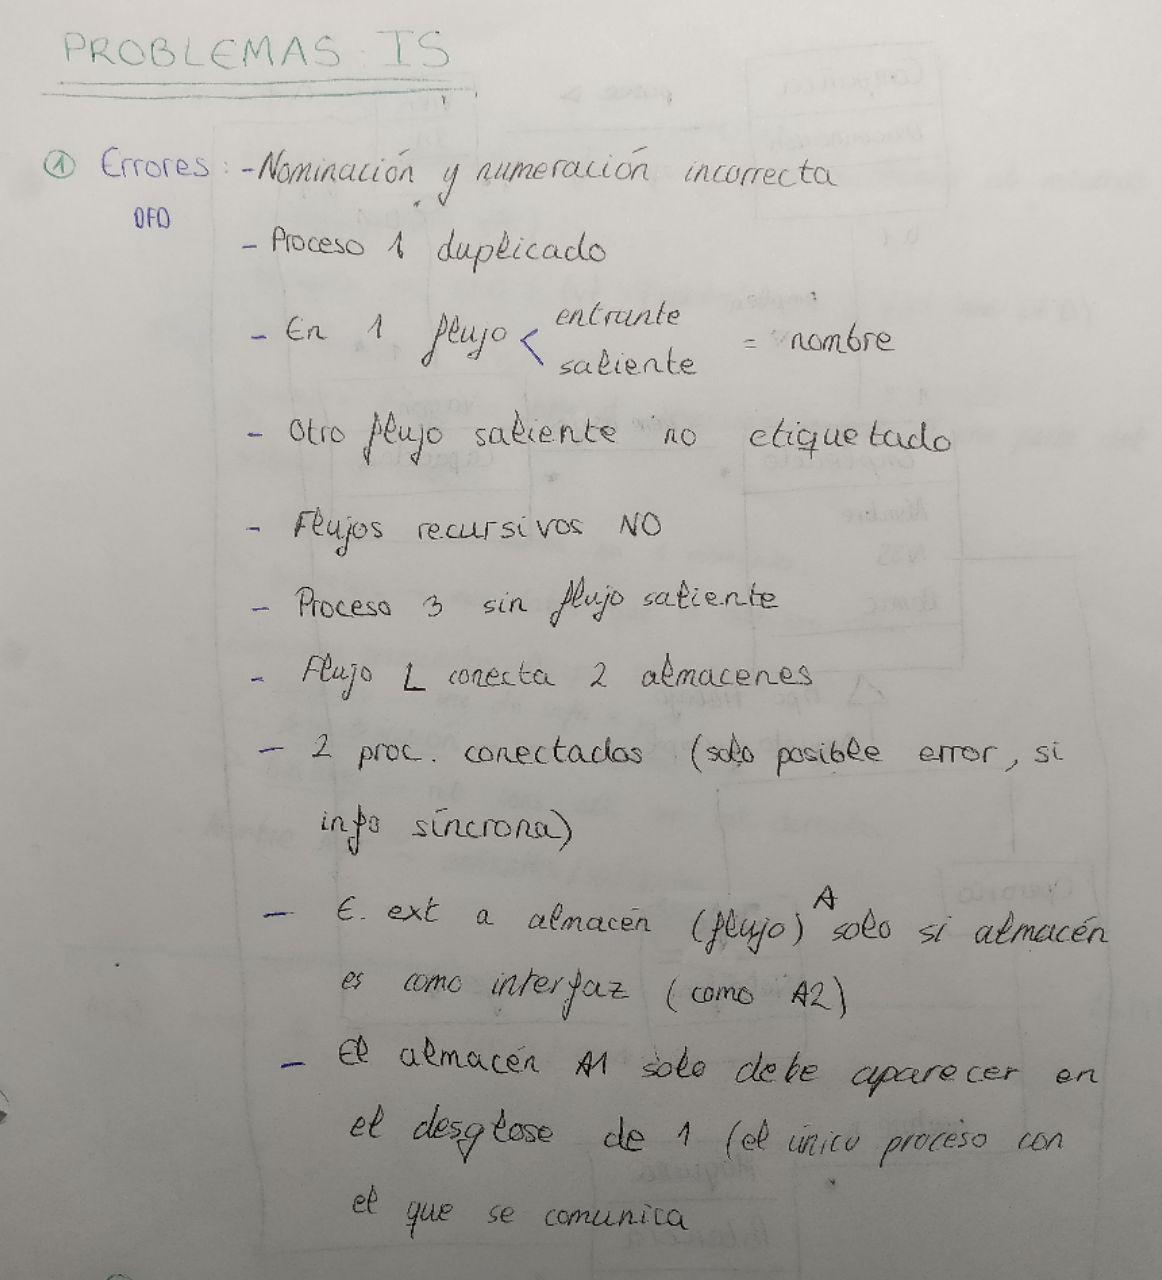 PROBLEMAS IS
① Errores: - Nominación y numeración incorrecta
DFD
- Proceso 1 duplicado
- En 1 flujo < entrante
saliente = nombre
- Otro flujo saliente no etiquetado
- Flujos recursivos NO
- Proceso 3 sin flujo saliente
- Flujo L conecta 2 almacenes
- 2 proc. conectados (solo posible error, si
info síncrona)
- E. ext a almacén (flujo) A solo si almacén
es como interfaz (como A2)
- El almacén A1 solo debe aparecer en
el desglose de 1 (el único proceso con
el que se comunica